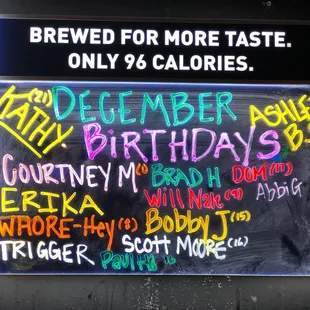 BREWED FOR MORE TASTE.
ONLY 96 CALORIES.
KATHY (21) DECEMBER ASHLE
BIRTHDAYS B.
COURTNEY M (1) BRAD H DOM (17)
ERIKA Will Nale (9) Abbi G
WHORE-Hey (8) Bobby J (15)
TRIGGER SCOTT MOORE (16)
Paul H 16